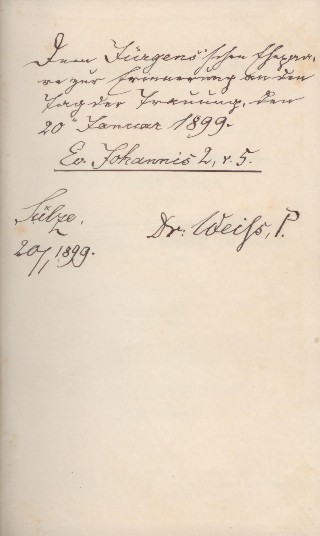 Dem Jürgens'schen Ehepaa-
re zur Erinnerung an den
Tag der Trauung, den
20ⁿ Januar 1899.
Ev. Johannis 2, v. 5.
Sülze,
20/1 1899.
Dr. Weiß, P.